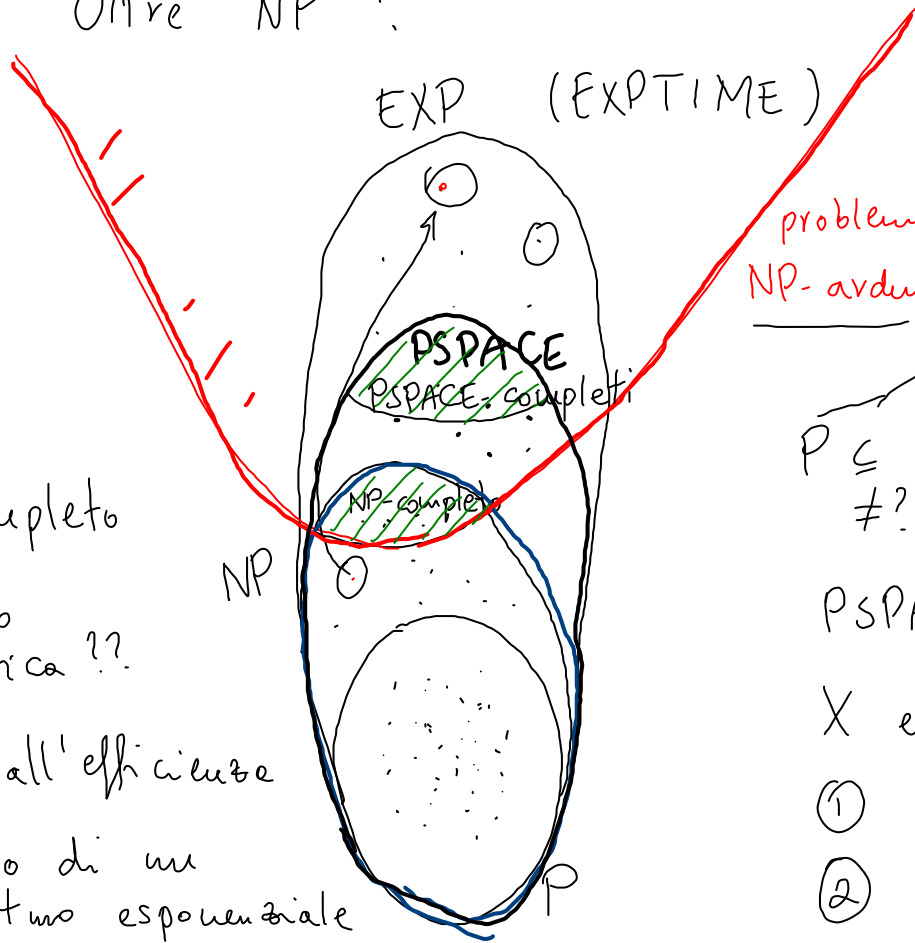 Oltre NP ?
EXP (EXPTIME)
problem
NP-ardu
PSPACE
PSPACE-completi
P ⊆
≠?
NP-completo
mpleto
NP
PSPA
o
ica ??
X e
all'efficienza
①
o di un
②
tmo esponenziale
P